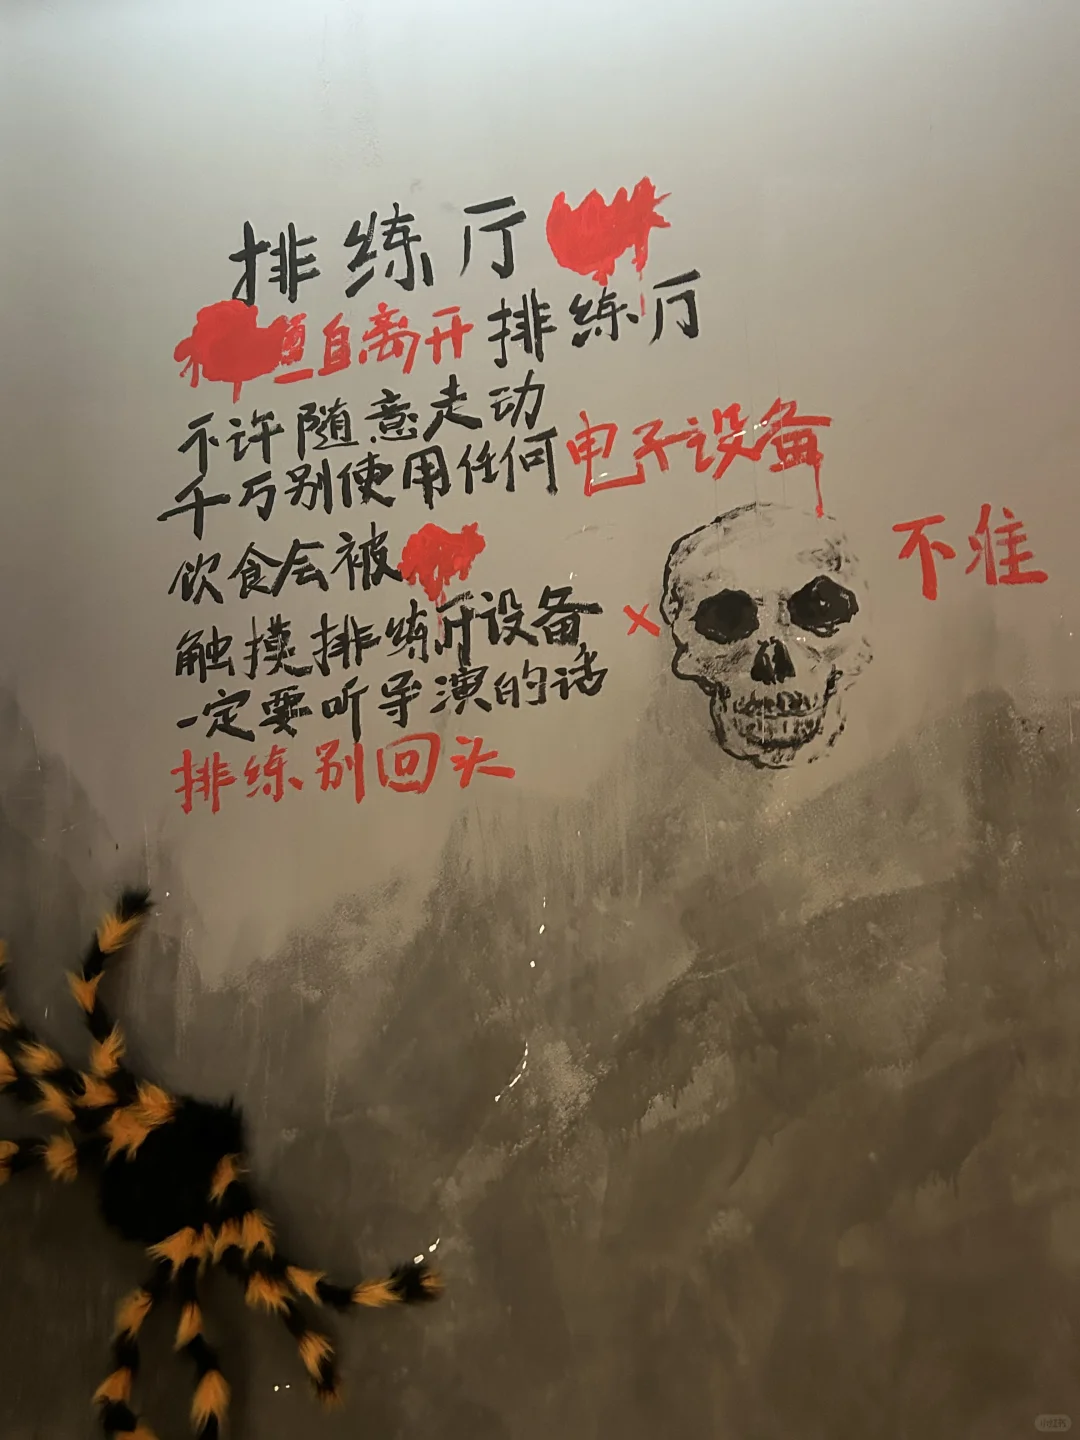 排练厅
擅自离开排练厅
不许随意走动
千万别使用任何电子设备
饮食会被
触摸排练厅设备 × 不准
一定要听导演的话
排练别回头
小红书